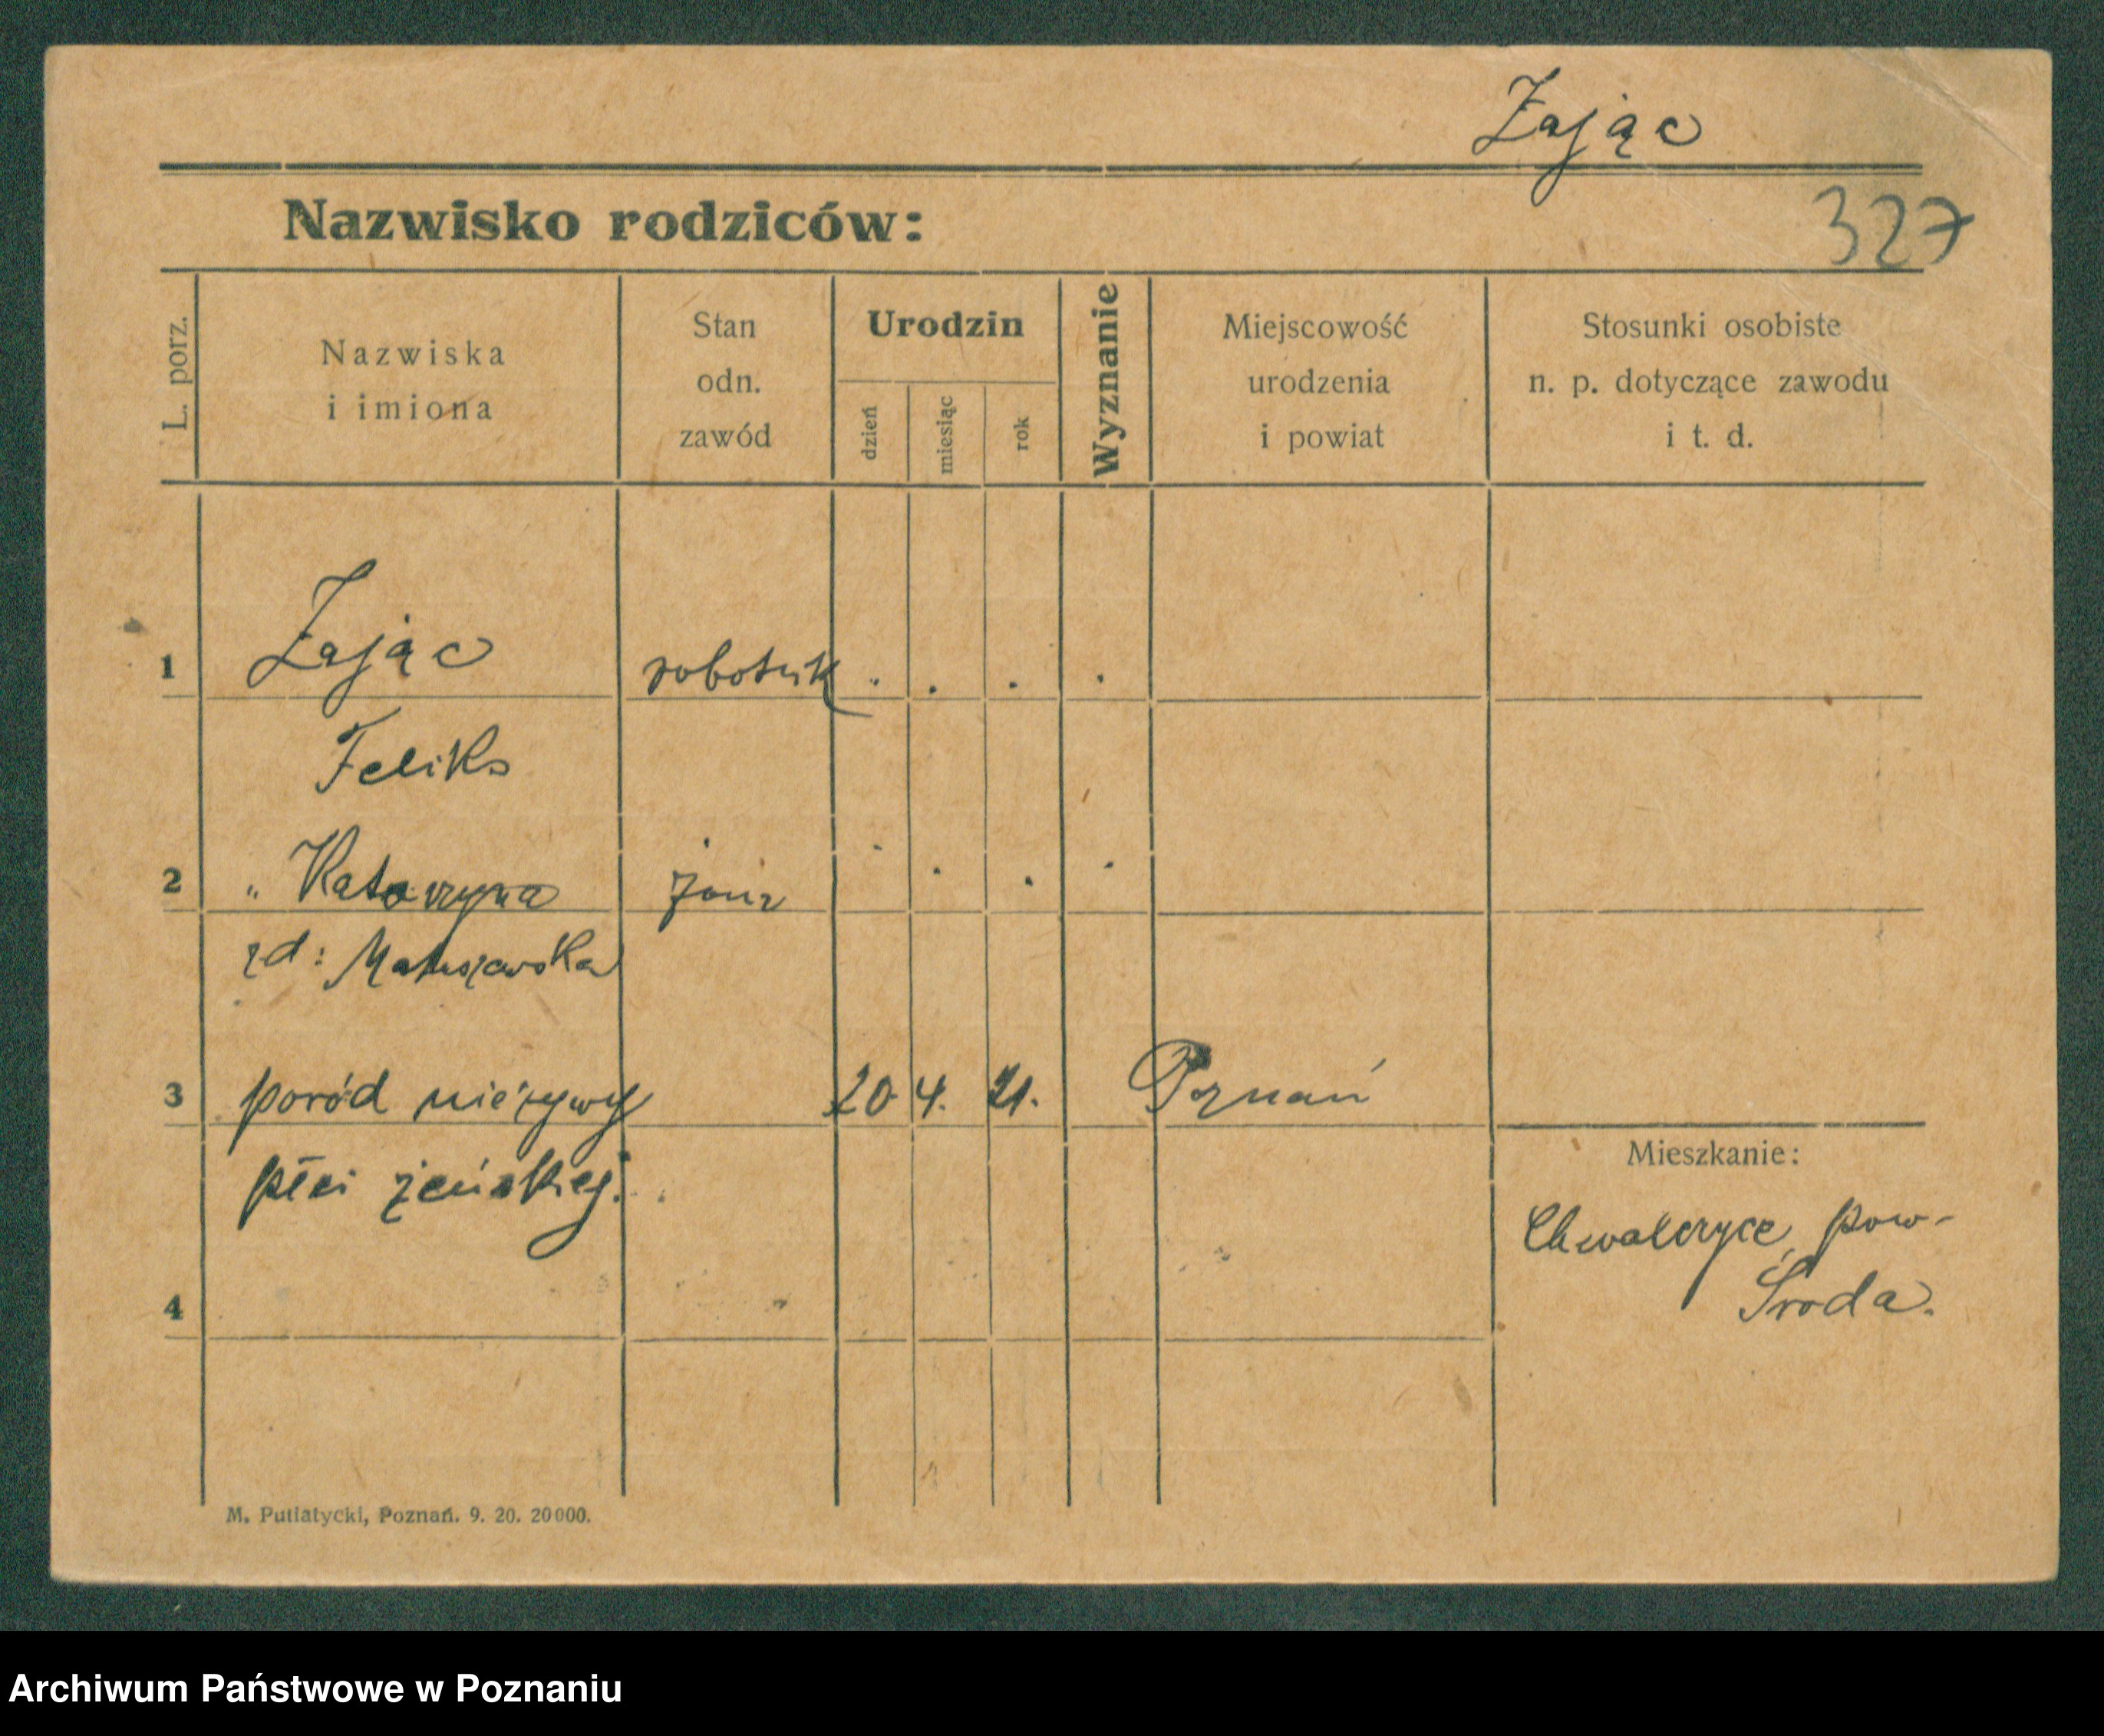 Zając
327
Nazwisko rodziców:
L. porz.
Nazwiska
i imiona
Stan
odn.
zawód
Urodzin
dzień
miesiąc
rok
Wyznanie
Miejscowość
urodzenia
i powiat
Stosunki osobiste
n. p. dotyczące zawodu
i t. d.
1 Zając robotnik . . . .
Feliks
2 „ Katarzyna żona . . . .
zd: Matuszewska
3 poród nieżywy 20. 4. 21. Poznań
płci żeńskiej.
Mieszkanie:
pow-
Środa.
4
M. Putiatycki, Poznań. 9. 20. 20000.
Archiwum Państwowe w Poznaniu